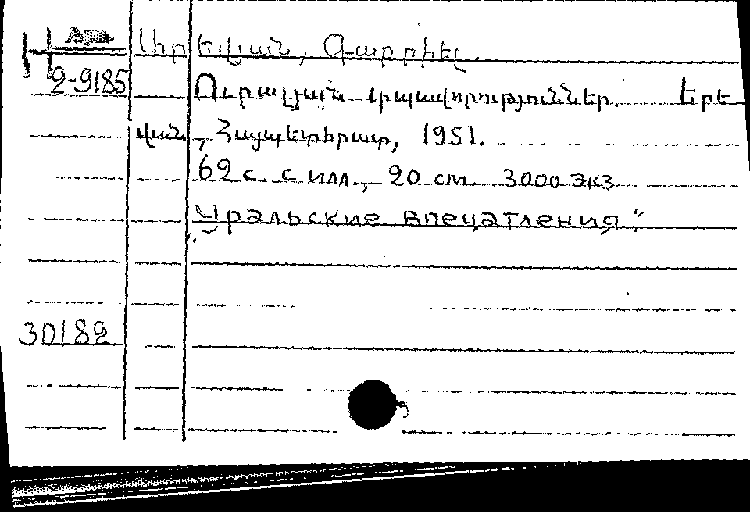 Արելյան, Գաբրիել
2-9185
Ուրալյան տպավորություններ. Երե
վան, Հայպետհրատ, 1951.
62 с. с илл., 20 см. 3000 экз
„Уральские впечатления"
30182